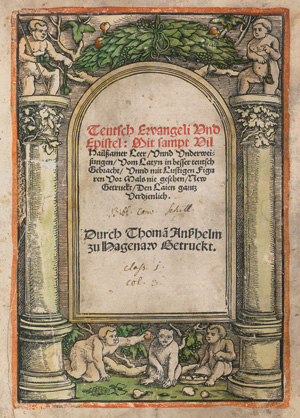 Teutsch Ewangeli Vnd
Epistel: Mit sampt Vil
Hailßamer Leer/ Vnnd Vnderwei-
sungen/ Vom Latyn in besser teutsch
Gebracht/ Vnnd mit Lustigen Figu
ren Vor Mals nie gesehen/ New
Getruckt/ Den Laien gantz
Verdienlich.
Durch Thomã Anßhelm
zu Hagenaw Getruckt.
class. 1.
col. 3.